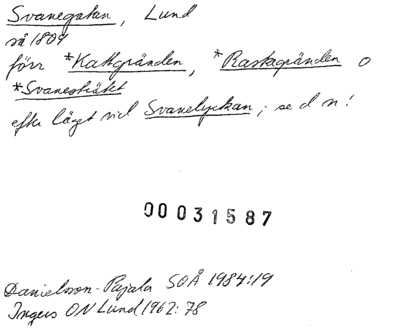 Svanegatan, Lund
så 1809
förr *Kattgränden, *Raskagränden o
*Svanesträtet
efter läget vid Svanelyckan; se d n!
00031587
Danielsson-Pajala SOÅ 1984:19
Ingers ON Lund 1962:78